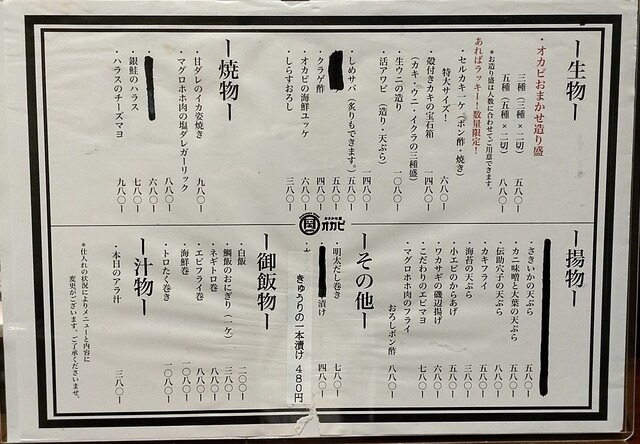 ー生物ー
・オカビおまかせ造り盛
三種（三種×二切） 五八〇ー
五種（五種×二切） 八八〇ー
＊お造り盛は人数に合わせてご用意できます。
あればラッキー！数量限定！
・セルカキ一ケ（ポン酢・焼き）
特大サイズ！ 六八〇ー
・殻付きカキの宝石箱
（カキ・ウニ・イクラの三種盛）
・生ウニの造り 一〇八〇ー
・活アワビ（造り・天ぷら） 一四八〇ー
・しめサバ（炙りもできます。） 五八〇ー
五八〇ー
・クラゲ酢 四八〇ー
・オカピの海鮮ユッケ 六八〇ー
・しらすおろし 三八〇ー
ー焼物ー
・甘ダレのイカ姿焼き 九八〇ー
・マグロホホ肉の塩ダレガーリック 八八〇ー
六八〇ー
・銀鮭のハラス 七八〇ー
・ハラスのチーズマヨ 九八〇ー
炉ばた
オカピ
ー揚物ー
・さきいかの天ぷら 五八〇ー
・カニ味噌と大葉の天ぷら 五八〇ー
・伝助穴子の天ぷら 八八〇ー
・カキフライ 五八〇ー
・海苔の天ぷら 三八〇ー
・小エビのからあげ 五八〇ー
・ワカサギの磯辺揚げ 六八〇ー
・こだわりのエビマヨ 七八〇ー
・マグロホホ肉のフライ
おろしポン酢 八八〇ー
ーその他ー
・明太だし巻き 七八〇ー
漬け 四八〇ー
きゅうりの一本漬け 480円
ー御飯物ー
・白飯 二〇〇ー
・鯛飯のおにぎり（一ケ） 三八〇ー
・ネギトロ巻 八八〇ー
・エビフライ巻 八八〇ー
・海鮮巻 一〇八〇ー
・トロたく巻き 一〇八〇ー
ー汁物ー
・本日のアラ汁 三八〇ー
＊仕入れの状況によりメニューと内容に
変更がございます。ご了承くださいませ。